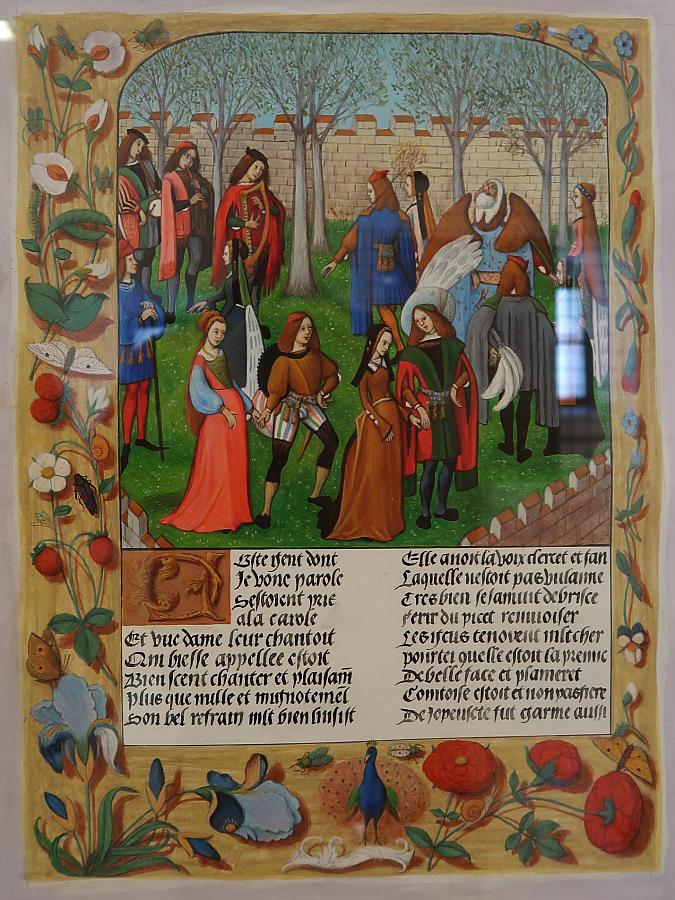 Ceste gent dont
Je vous parole
Sestoient pris
a la carole
Et une dame leur chantoit
Qui liesse appellee estoit
Bien scent chanter et plaisam
Plus que nulle et mignotemēt
Son bel refrain mlt bien lui sist
Elle avoit la voix clere et
Laquelle nestoit pas vulaine
Tres bien se savoit debrisce
ferir du piet renvoiser
Les ieus tenoient
pourtei quelle estoit la
De belle face et
Comtoise estoit et non pas fiere
De joyeusete fut garnie aussi